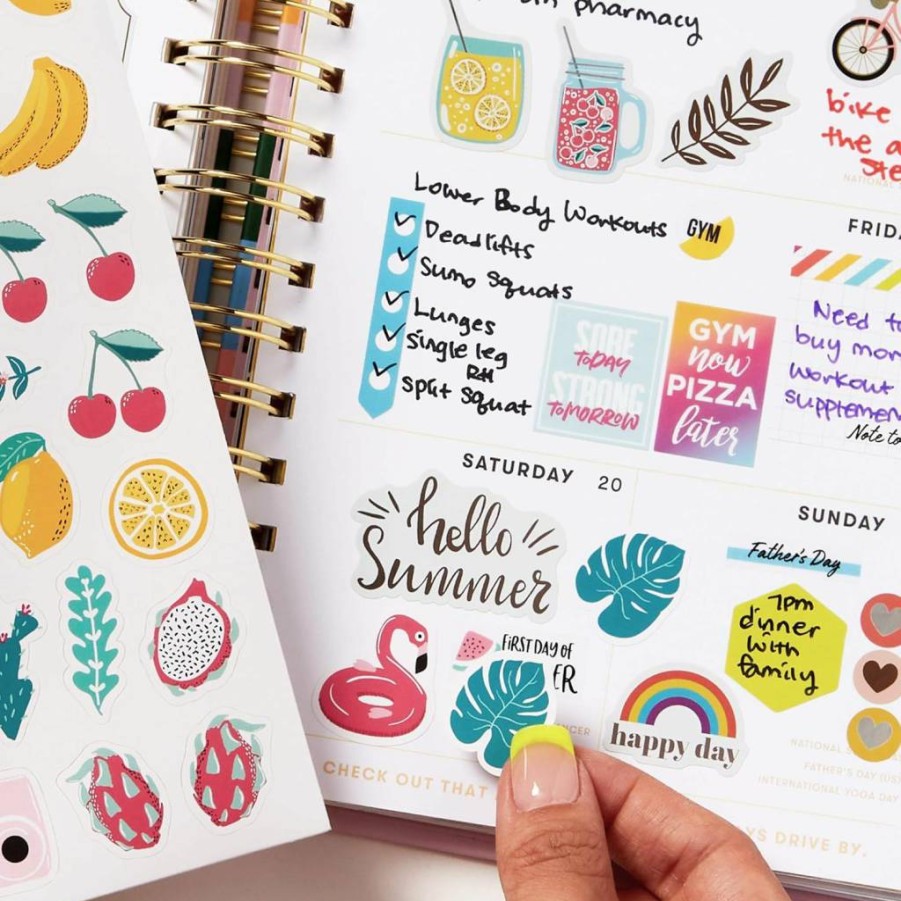 pharmacy
bike
the
Lower Body Workouts
GYM
Deadlifts
Sumo Squats
Lunges
Single leg
Split Squat
SORE
TODAY
STRONG
TOMORROW
GYM
now
PIZZA
later
Need
buy
workout
Note to
SATURDAY 20
hello
Summer
FIRST DAY OF
ER
happy day
SUNDAY
Father's Day
7pm
dinner
with
family
NATIONAL
FATHER'S DAY
INTERNATIONAL YOGA DAY
CHECK OUT THAT
DRIVE BY.